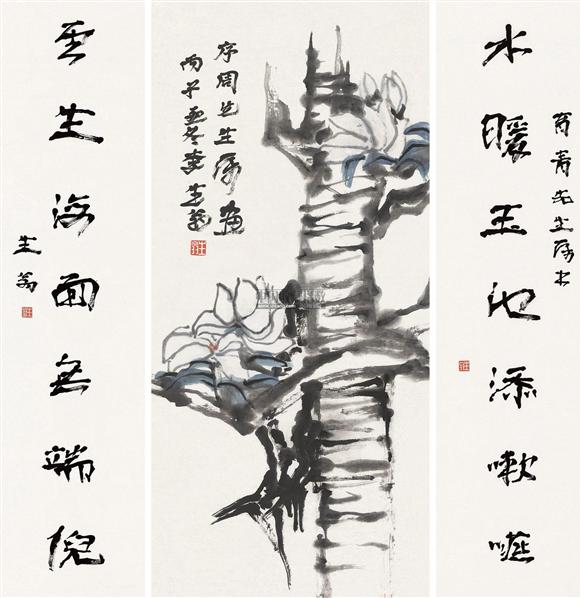 水暖玉池添嗽嚥
育青先生屬書
序周先生屬畫
丙子孟冬李生翁
云生海面無端倪
生翁